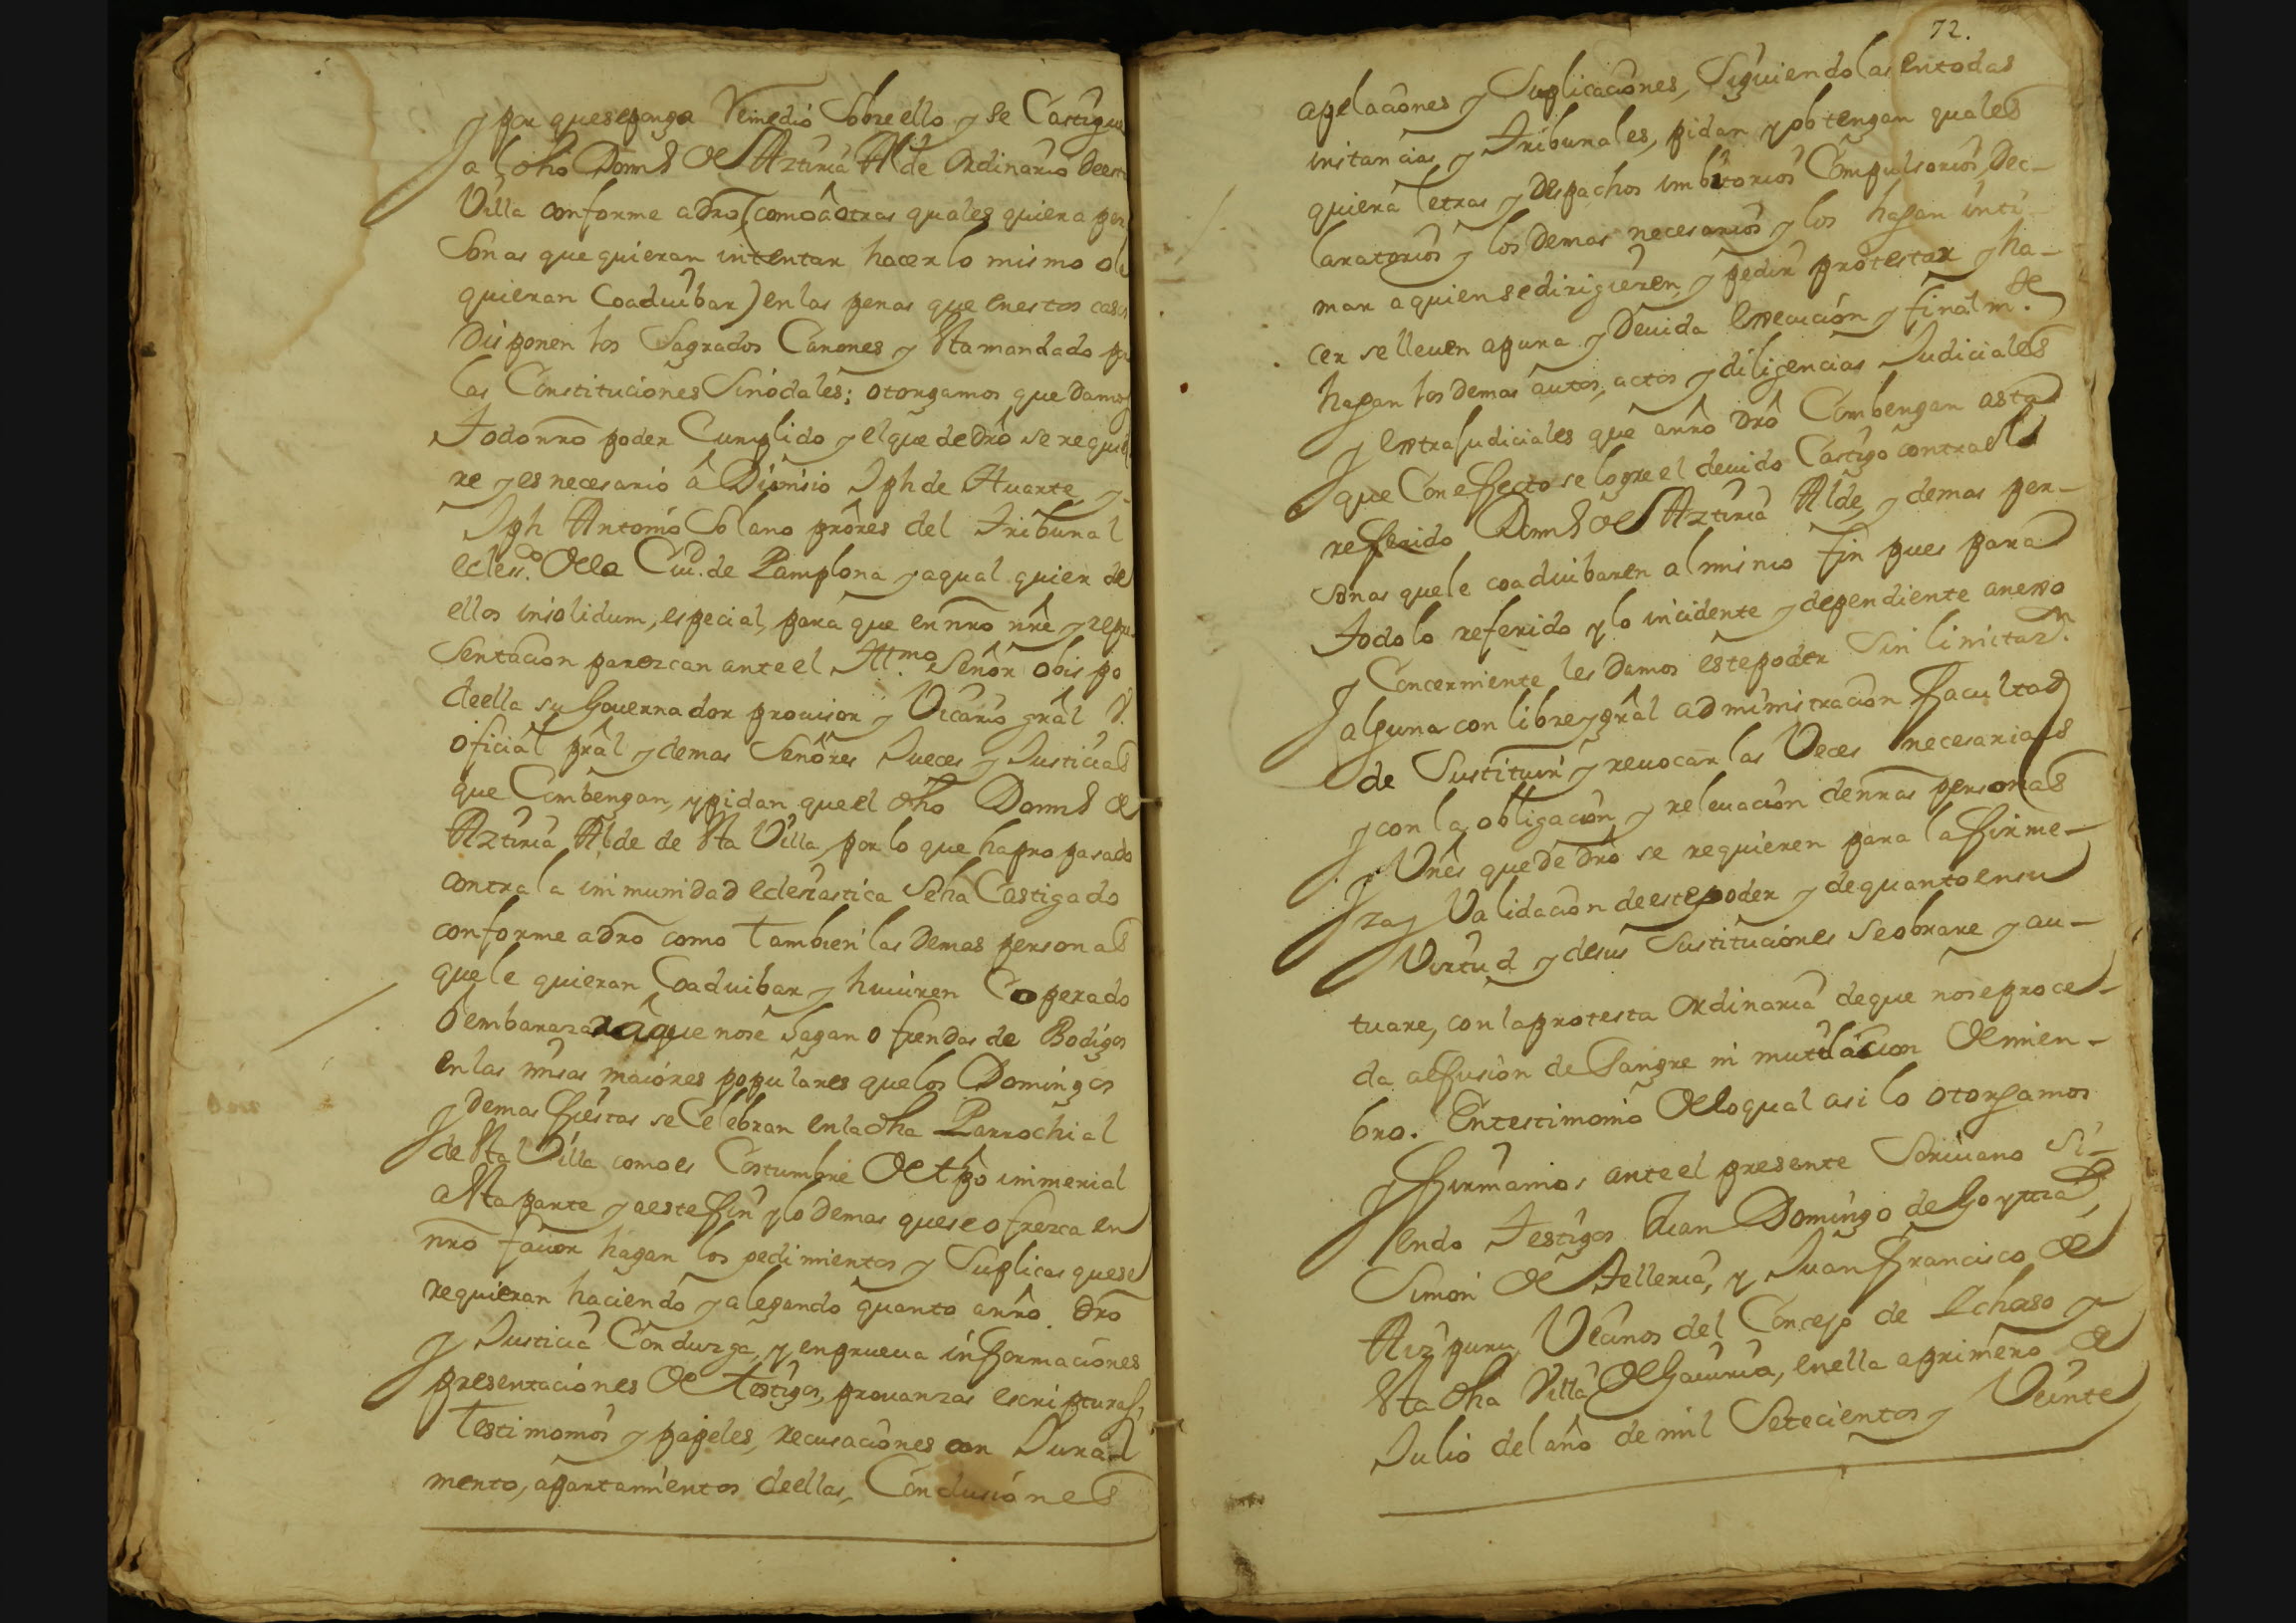 y por que se ponga Remedio Sobre ello y se Castigue
al dho Domin.º de Azttiria Alde Ordinario de esta
Villa conforme a dro (como a otras quales quiera per
Sonas que quieran intentar hacer lo mismo o le
quieran Coadiubar) en las penas que en estos casos
Disponen los Sagrados Canones y Esta mandado por
las Constituciones Sinodales; otorgamos que Damos
Todo nro poder Cumplido y el que de dro se requie
re y es necesario â Dionisio Jph de Huarte y
Jph Antonio Solano prôres del Tribunal
ecless.co de la Ciu.d de Pamplona y a qual quier de
ellos insolidum, especial, para que en nro nre y repre
Sentacion parezcan ante el Ill.mo Señor obispo
de ella su Governador provisor y Vicario grâl V.
oficial prâl y demas Señores Jueces y Justicias
que Combengan, y pidan que el dho Domin.º de
Azttiria Alde de Esta Villa, por lo que ha propasado
contra la inimunidad eclesiastica Seha Castigado
conforme a dro como tambien las Demas personas
que le quieran Coadiubar y huviren Coperado
ô embarazar â que no se hagan ofrendas de Bodigos
en las misas maiores populares que los Domingos
y demas fiestas se Celebran en la dha Parrochial
de Esta Villa como es Costumbre de tpô inmerial
a Esta parte y a este fin y lo demas que se ofrezca en
nro favor hagan los pedimientos y Suplicas que se
requieran haciendo y alegando quanto a nro dro
y Justicia Conduzga, y en prueva informaciones
presentaciones de testigos, provanzas escripturas,
testimonios y papeles, recusaciones con Jura
mento, apartamientos de ellas, Conclusiones
72.
apelaciones y Suplicaciones, Siguiendolas en todas
instancias y Tribunales, pidan y obtengan quales
quiera letras y Despachos imbitorios Compulsorios, Dec-
laratorios y los Demas necesarios y los hagan inti-
mar a quien se dirigieren, y pedir protestar y ha-
cer se lleven a pura y Devida Execucion y final m.te
hagan los Demas autos, actos y diligencias Judiciales
y Extrajudiciales que a nro dro Combengan asta
que Con effecto se logre el devido Castigo contra el
refferido Domin.º de Azttiria Alde, y demas per-
sonas que le coadiubaren al mismo fin pues para
todo lo referido y lo incidente y dependiente anexo
y Concerniente les Damos este poder Sin limitaz.n
alguna con libre y grâl administracion facultad
de Sustituir y revocar las Veces necesarias
y con la obligacion y relevacion de nras personas
y Vnês que de dro se requieren para la firme-
za y Validacion de este poder y de quanto en su
Virtud y de sus Sustituciones se obrare y au-
tuare, con la protesta Ordinaria de que no se proce-
da a efusion de Sangre ni mutilacion de mien-
bro. En testimonio de lo qual asi lo otorgamos
y firmamos ante el presente Scrivano Si-
endo Testigos Juan Domingo de Goytia,
Simon de Telleria, y Juan Francisco de
Aizpuru Vecinos del Concejo de Ichaso y
Esta dha Villa de Gaviria, en ella a primero de
Julio del año de mil Setecientos y Veinte